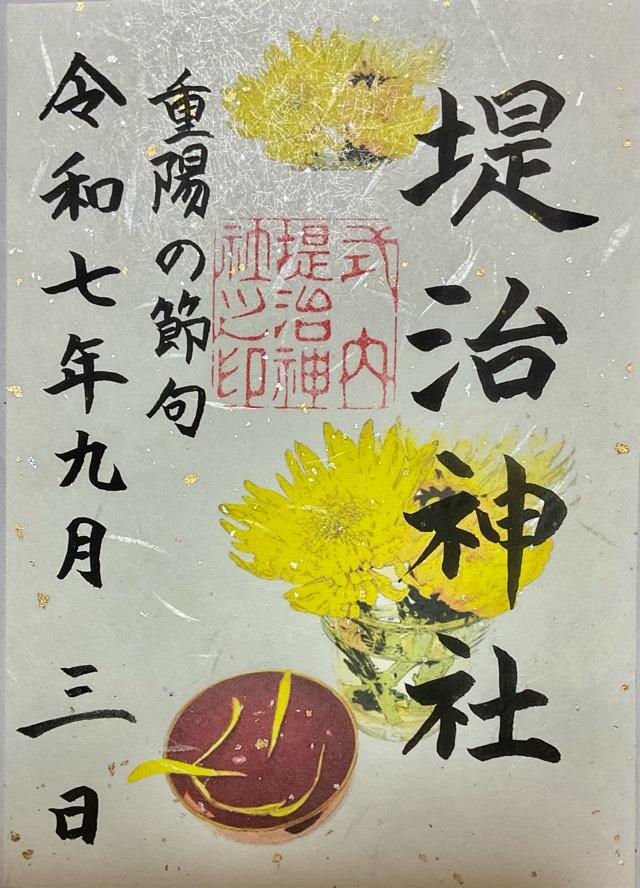 堤治神社
式内
堤治神
社之印
重陽の節句
令和七年九月三日